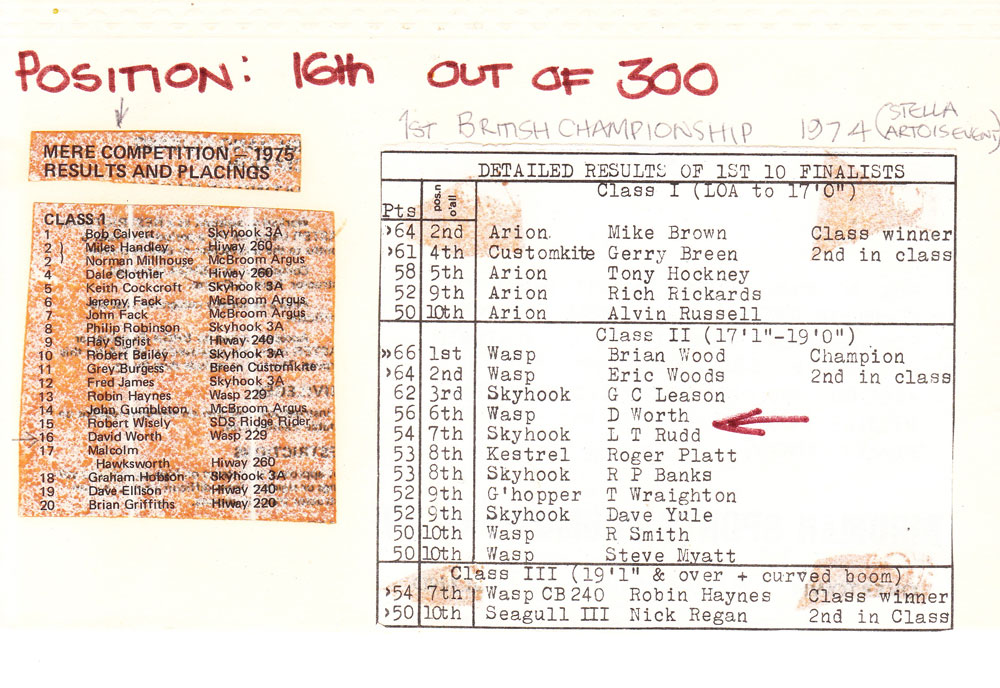 POSITION: 16th OUT OF 300
1ST BRITISH CHAMPIONSHIP 1974 (STELLA ARTOIS EVENT)
MERE COMPETITION – 1975
RESULTS AND PLACINGS
CLASS 1
1 Bob Calvert Skyhook 3A
2 ) Miles Handley Hiway 260
2 ) Norman Millhouse McBroom Argus
4 Dale Clothier Hiway 260
5 Keith Cockcroft Skyhook 3A
6 Jeremy Fack McBroom Argus
7 John Fack McBroom Argus
8 Philip Robinson Skyhook 3A
9 Ray Sigrist Hiway 240
10 Robert Bailey Skyhook 3A
11 Grey Burgess Breen Customkite
12 Fred James Skyhook 3A
13 Robin Haynes Wasp 229
14 John Gumbleton McBroom Argus
15 Robert Wisely SDS Ridge Rider
16 David Worth Wasp 229
17 Malcolm
Hawksworth Hiway 260
18 Graham Hobson Skyhook 3A
19 Dave Ellison Hiway 240
20 Brian Griffiths Hiway 220
DETAILED RESULTS OF 1ST 10 FINALISTS
Class I (LOA to 17'0")
Pts pos.n o'all
›64 2nd Arion. Mike Brown Class winner
›61 4th Customkite Gerry Breen 2nd in class
58 5th Arion Tony Hockney
52 9th Arion Rich Rickards
50 10th Arion Alvin Russell
Class II (17'1"-19'0")
»66 1st Wasp Brian Wood Champion
›64 2nd Wasp Eric Woods 2nd in class
62 3rd Skyhook G C Leason
56 6th Wasp D Worth
54 7th Skyhook L T Rudd
53 8th Kestrel Roger Platt
53 8th Skyhook R P Banks
52 9th G'hopper T Wraighton
52 9th Skyhook Dave Yule
50 10th Wasp R Smith
50 10th Wasp Steve Myatt
Class III (19'1" & over + curved boom)
›54 7th Wasp CB 240 Robin Haynes Class winner
›50 10th Seagull III Nick Regan 2nd in Class